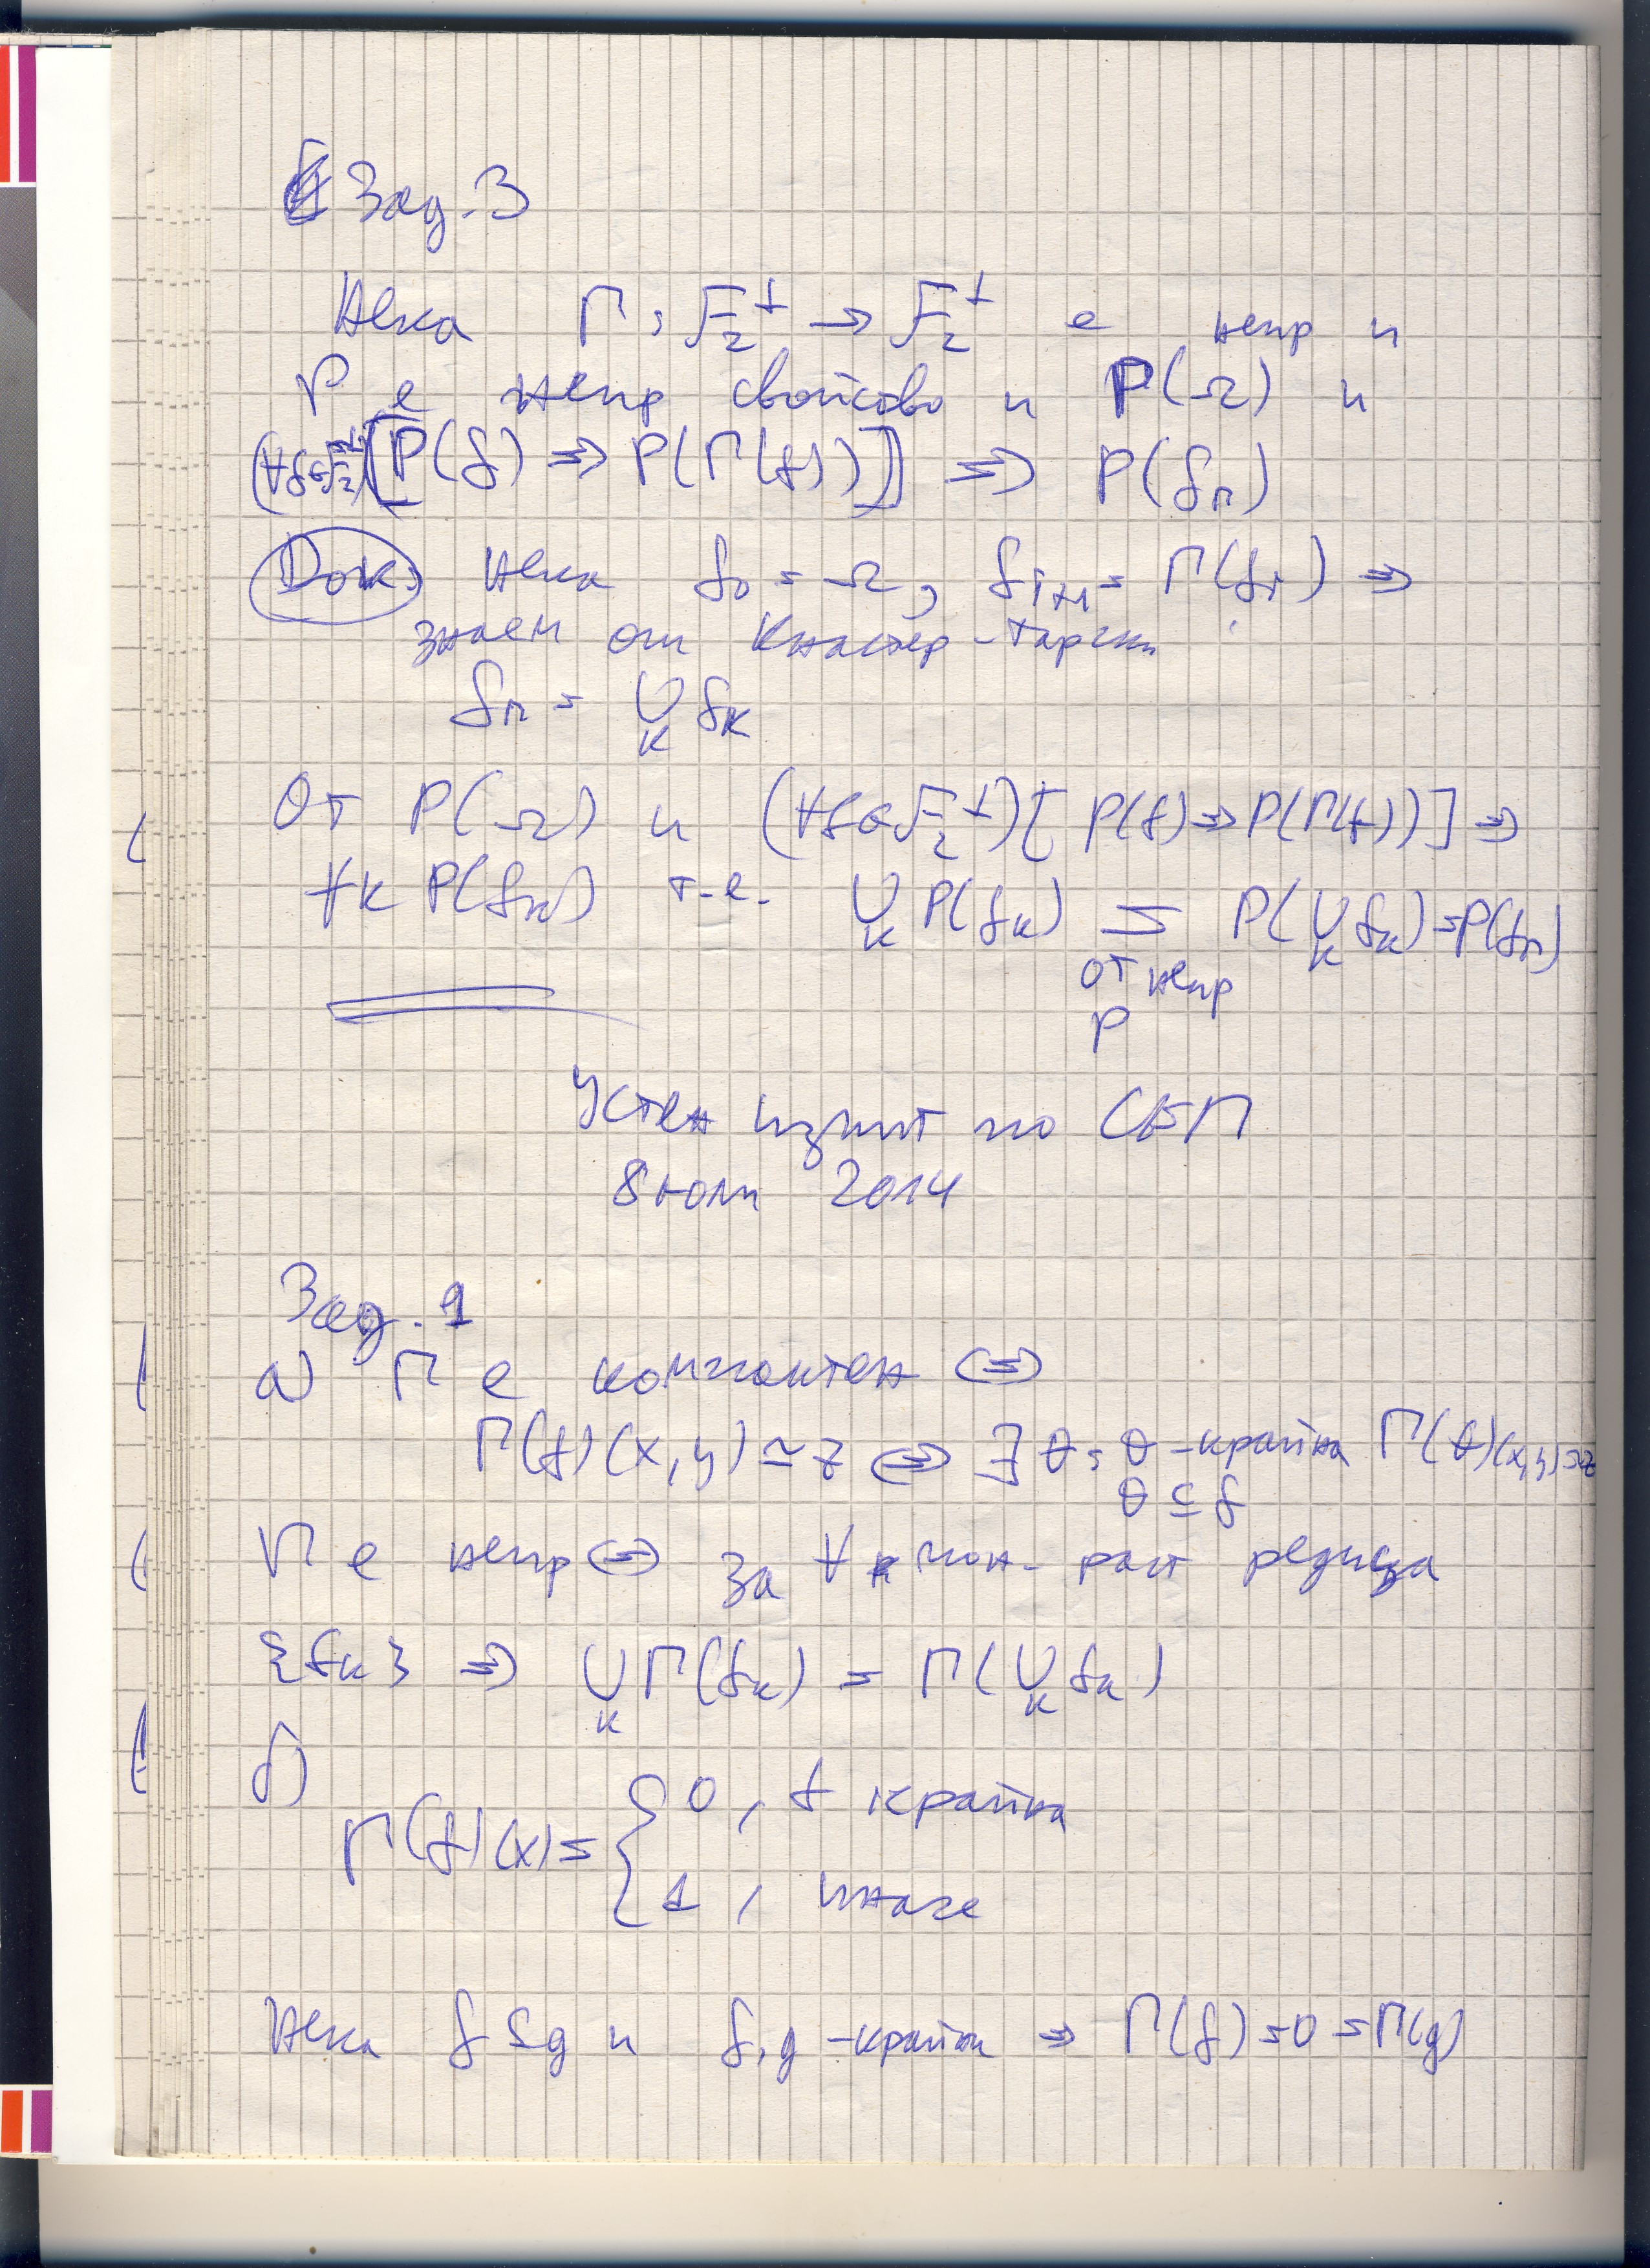 Зад. 3
Нека Γ: F₂^⊥ → F₂^⊥ е непр и
P е непр свойство и P(Ω) и
(∀f∈F₂^⊥)[P(f) ⇒ P(Γ(f))] ⇒ P(f_Γ)
Док. Нека f₀ = Ω, f_{i+1} = Γ(f_i) ⇒
знаем от Кнастер-Тарски:
f_Γ = ∪_k f_k
От P(Ω) и (∀f∈F₂^⊥)[P(f) ⇒ P(Γ(f))] ⇒
∀k P(f_k) т.е. ∪_k P(f_k) = P(∪_k f_k) = P(f_Γ)
от непр
P
Устен изпит по СЕП
8 юли 2014
Зад. 1
а) Γ е компактен ⇔
Γ(f)(x,y) ≃ z ⇔ ∃θ: θ-крайна Γ(θ)(x,y) ≃ z
θ ⊆ f
Γ е непр ⇔ за ∀ мон. раст редица
{f_k} ⇒ ∪_k Γ(f_k) = Γ(∪_k f_k)
б)
Γ(f)(x) = { 0, f крайна
1, иначе
Нека f ⊆ g и f, g -крайни ⇒ Γ(f) = 0 = Γ(g)